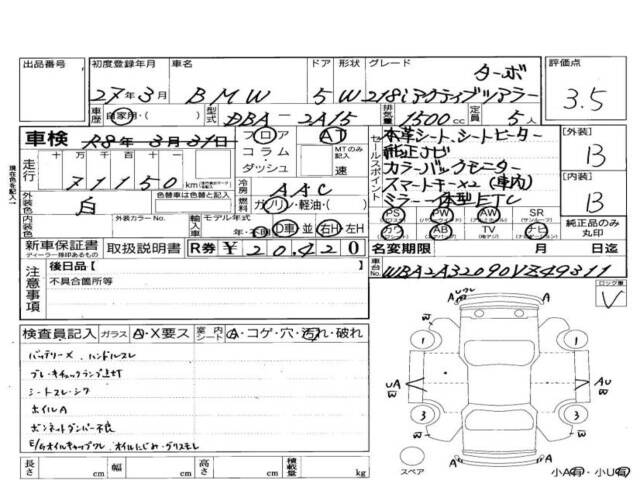 出品番号 初度登録年月 車名 ドア 形状 グレード 評価点
27年3月 BMW 5 W 218iアクティブツアラー ターボ 3.5
車歴 自家用・( ) 型式 DBA-2A15 排気量 1500cc 定員 5人
車検 R8年3月31日 フロア AT
本革シート、シートヒーター
[外装] B
走行 十万 万 千 百 十 一 コラム MTのみ記入
純正ナビ
71150km ダッシュ 速
セールスポイント カラーバックモニター
現在色を記入
外装色 白 色替車は色替と記入 冷房 AAC
スマートキーx2(車内)
[内装] B
燃料 ガソリン・軽油・( )
ミラー一体型ETC
内装色 外装カラーNo. 輸入車 モデル年式 年・不明 D車 並 右H 左H
PS (パワーステアリング) PW (パワーウィンドウ) AW (アルミホイール) SR (サンルーフ) 純正品のみ丸印
カワ AB (エアバッグ) TV (地デジ) ナビ
新車保証書 取扱説明書 R券 ¥20,420
ディーラー捺印あるもの
名変期限 月 日迄
車台No. WBA2A32090VZ49311
注意事項 後日品[ ]
不具合箇所等
ロック車 V
検査員記入 ガラス A・X要ス 室内シート A・コゲ・穴・汚れ・破れ
バッテリーX、ハンドルスレ
ブレーキチェックランプ点灯
シートスレ・シワ
ホイルA
ボンネットダンパー不良
E/Gオイルキャップワレ、オイルにじみ・グリスモレ
A Uワレ A
B B
1 1
UA B AU B
3 3
B B
A A
スペア
小A有・小U有
長さ cm 幅 cm 高さ cm 積載量 kg